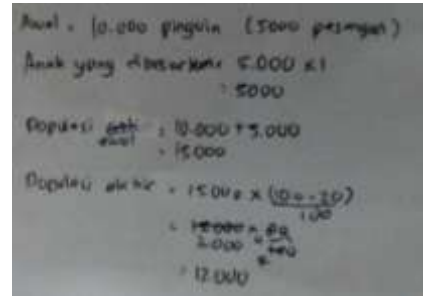 Awal = 10.000 pinguin (5000 pasangan)
Anak yang dibesarkan = 5.000 x 1
= 5000
Populasi awal = 10.000 + 5.000
= 15.000
Populasi akhir = 15.000 x (100-20)
100
= 15.000 x 80
3.000
= 12.000